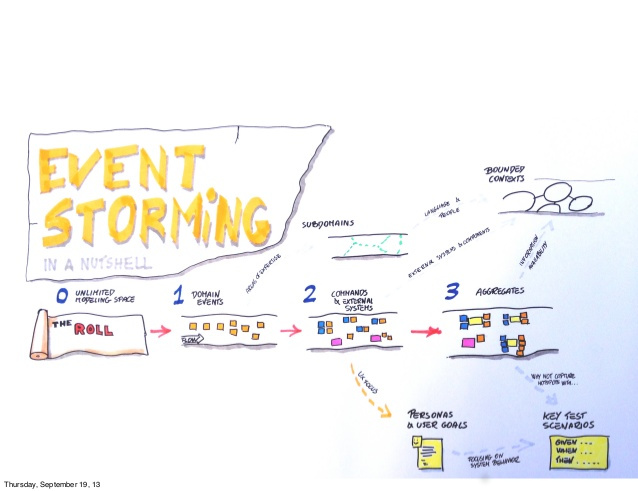 EVENT
STORMING
IN A NUTSHELL
0 UNLIMITED
MODELING SPACE
THE ROLL
1 DOMAIN
EVENTS
FLOW
AREAS OF EXPERTISE
SUBDOMAINS
2 COMMANDS
& EXTERNAL
SYSTEMS
LANGUAGE &
PEOPLE
EXTERNAL SYSTEMS & COMMANDS
BOUNDED
CONTEXTS
INFORMATION
3 AGGREGATES
UX FOCUS
WHY NOT CAPTURE
HOTSPOTS WITH...
PERSONAS
& USER GOALS
FOCUSING ON
SYSTEM BEHAVIOR
KEY TEST
SCENARIOS
GIVEN ...
WHEN ...
THEN ...
Thursday, September 19, 13